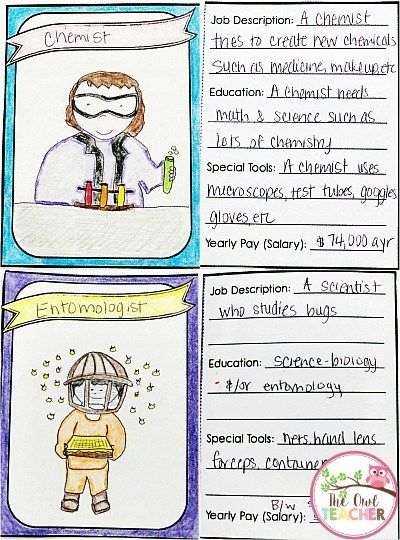 Chemist
Job Description: A chemist
tries to create new chemicals
such as medicine, makeup, etc
Education: A chemist needs
math & science such as
lots of chemistry
Special Tools: A chemist uses
microscopes, test tubes, goggles
gloves, etc
Yearly Pay (Salary): $74,000 a yr
Entomologist
Job Description: A scientist
who studies bugs
Education: science-biology
&/or entomology
Special Tools: nets, hand lens
forceps, container
B/w
Yearly Pay (Salary):
The Owl
TEACHER